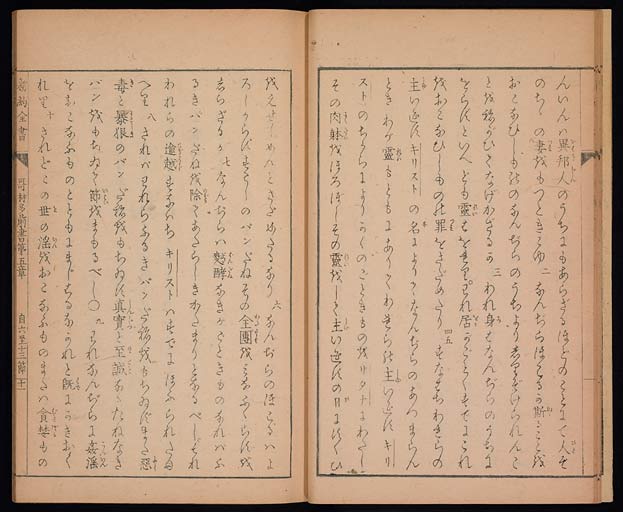 んいんハ異邦人のうちにもあらざるほどのことにて人そ
のちゝの妻をもつときこゆ 二 なんぢらほこるか斯ることを
おこなひしものなんぢらのうちより のぞかれんこ
とをねがひてなげかざるか 三 われ身はなんぢらのうちに
をらずといへども靈は 居がごとくすでにこれ
をおこなひしものの罪をさだめたり 四五 すなはちわれらの
主いゑすキリストの名によりてなんぢらのあつまらん
ときわが靈もともにありてわれらの主いゑすキリ
ストのちからによりてかくのごときものをサタナにわたし
その肉躰をほろぼしその靈をして主いゑすの日にすくひ
をえせしめんとさだめたるなり 六 なんぢらのほこるハよ
ろしからずすこしのパンだねその全團をみなふくらすを
しらざるか 七 なんぢらハ麪酵なきがごときものなれバふ
るきパンだねを除てあたらしきかたまりとなるべしそれ
われらの逾越すなはちキリストハすでにほふられたま
へり 八 されバわれらふるきパンだねをもちゐずまた惡
毒と暴狠のパンだねをもちゐず眞實と至誠なるたねなき
パンをもちゐて節をまもるべし〇 九 われなんぢらに姦淫
をおこなふものとともにまじはるなかれと既にかきおく
れり 十 されどこの世の淫をおこなふものまたハ貪婪もの
新約全書 哥林多前書第五章 自六至十三節 十